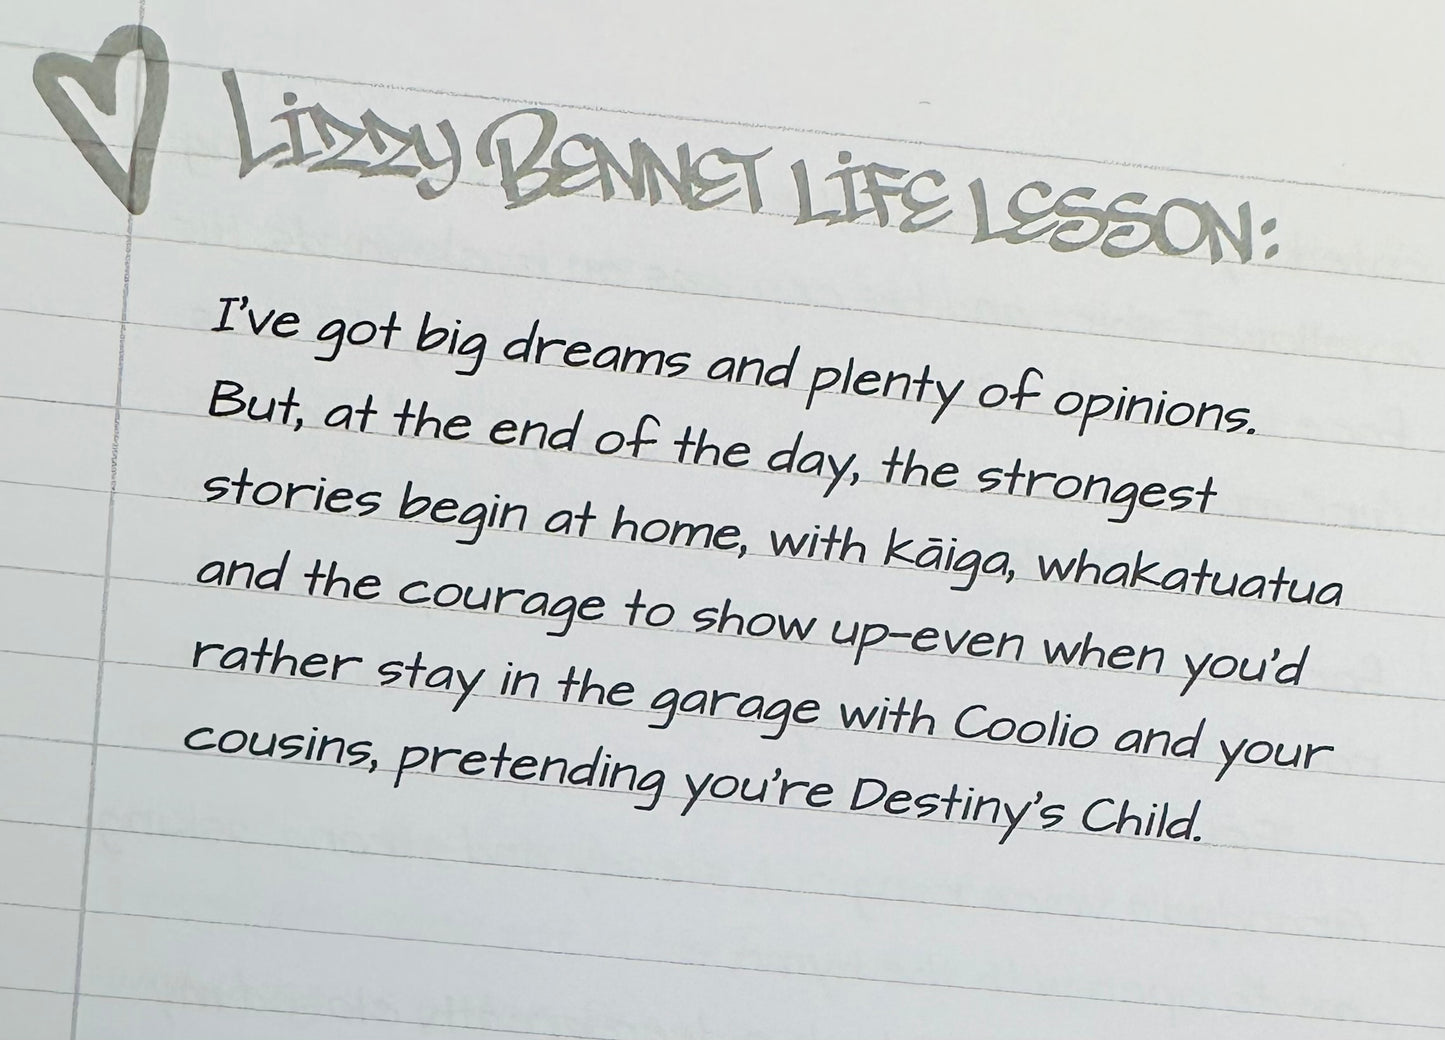 LIZZY BENNET LIFE LESSON:
I've got big dreams and plenty of opinions.
But, at the end of the day, the strongest
stories begin at home, with kāiga, whakatuatua
and the courage to show up-even when you'd
rather stay in the garage with Coolio and your
cousins, pretending you're Destiny's Child.